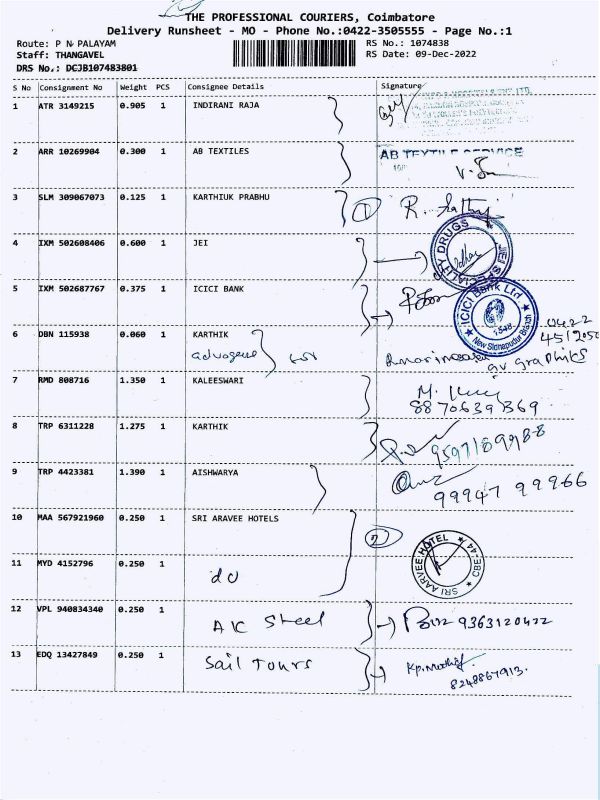 THE PROFESSIONAL COURIERS, Coimbatore
Delivery Runsheet - MO - Phone No.:0422-3505555 - Page No.:1
Route: P N PALAYAM RS No.: 1074838
Staff: THANGAVEL RS Date: 09-Dec-2022
DRS No.: DCJB107483801
S No Consignment No Weight PCS Consignee Details Signature
1 ATR 3149215 0.905 1 INDIRANI RAJA
2 ARR 10269904 0.300 1 AB TEXTILES AB TEXTILE SERVICE
3 SLM 309067073 0.125 1 KARTHIUK PRABHU 1 R.
4 IXM 502608406 0.600 1 JEI JEI SPECIALITY DRUGS
5 IXM 502687767 0.375 1 ICICI BANK ICICI Bank Ltd
New Siddapudur Branch
0422
6 DBN 115938 0.060 1 KARTHIK
gv graphiks
7 RMD 808716 1.350 1 KALEESWARI M.
8870639869
8 TRP 6311228 1.275 1 KARTHIK
9 TRP 4423381 1.390 1 AISHWARYA
99947 99966
10 MAA 567921960 0.250 1 SRI ARAVEE HOTELS
SRI AARVEE HOTEL CBE-44
11 MYD 4152796 0.250 1 do
12 VPL 940834340 0.250 1 AK Steel 9363120422
13 EDQ 13427849 0.250 1 Sail Tours
8248867913.